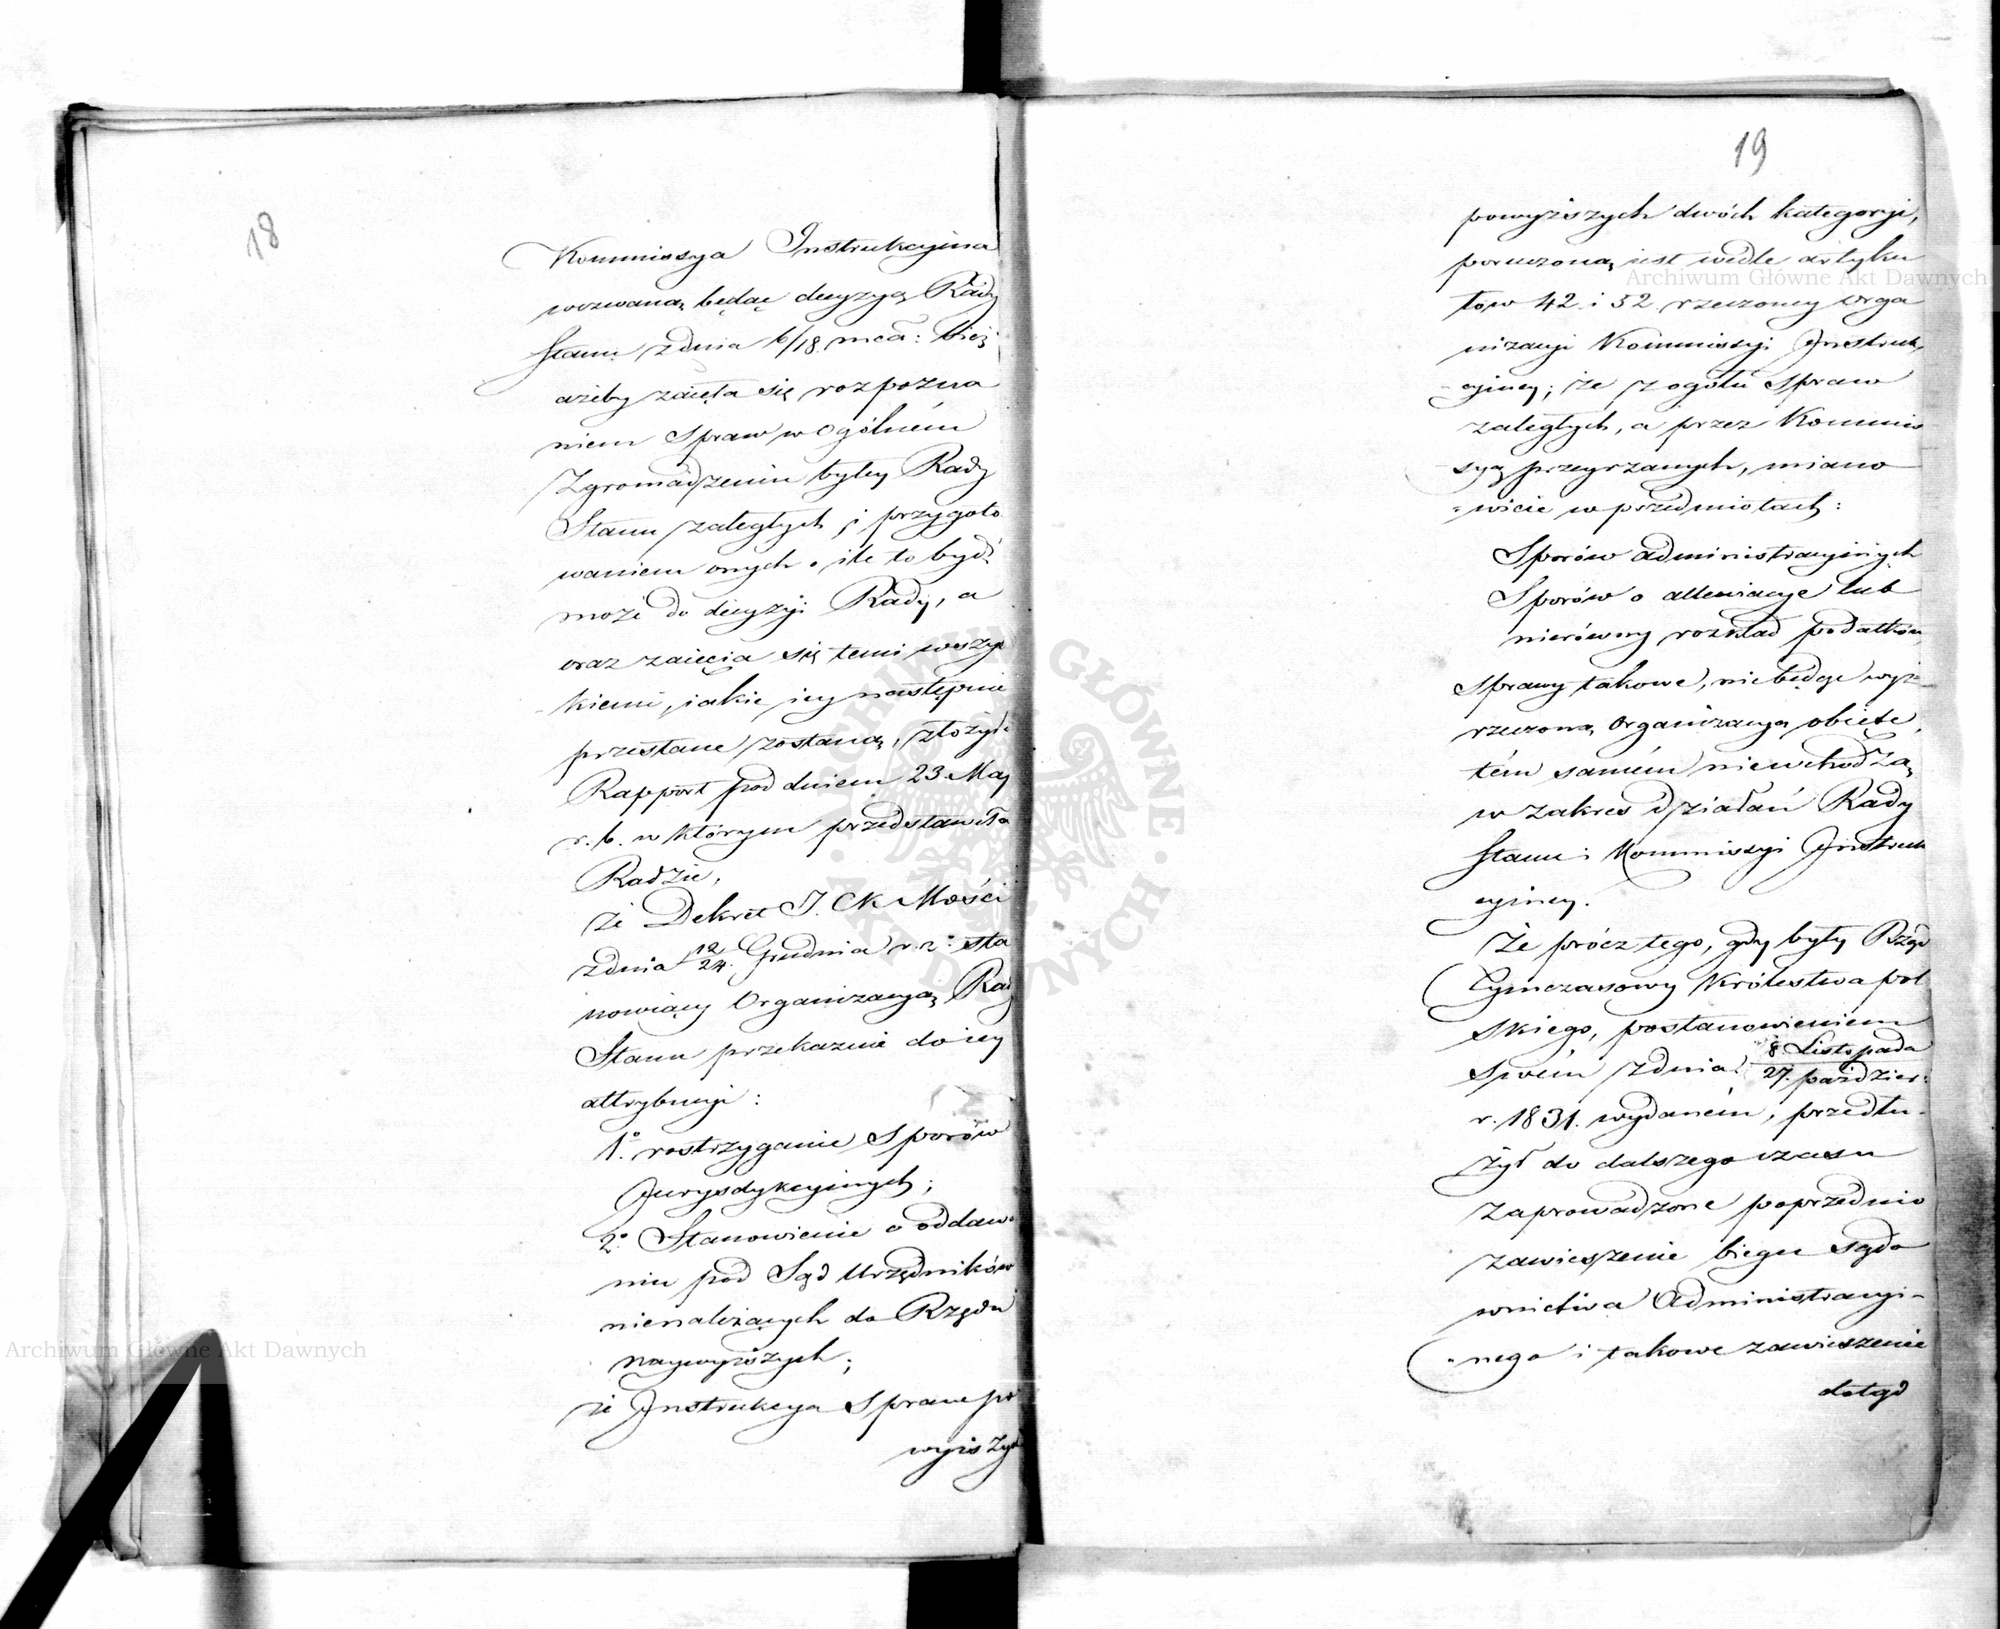 18
Kommissya Instrukcyina
wezwaną będąc decyzyą Rady
Stanu z dnia 6/18. mca: bież:
ażeby zaięła się rozpozna
niem Spraw w Ogólném
Zgromadzeniu byłey Rady
Stanu zaległych, i przygoto
waniem onych o ile to bydź
może do decyzyi Rady, a
oraz zaięcia się temi wszyst
kiemi, iakie iey następnie
przesłane zostaną, złożyła
Rapport pod dniem 23. Maj
r. b. w którym przedstawiła
Radzie,
że Dekret J. CK Mości
z dnia 12/24. Grudnia r. z: sta
nowiący Organizacyą Rady
Stanu przekazuie do iey
attrybucyi:
1º. rostrzyganie Sporów
Jurysdykcyinych;
2º. Stanowienie o oddawa
niu pod Sąd Urzędników
nienależących do Rzędu
naywyższych;
że Instrukcya Spraw po
wyższych
19
powyższych dwóch kategoryi,
poruczoną iest wedle artyku
łów 42. i 52. rzeczoney orga
nizacyi Kommissyi Instruk,
cyiney; że z ogółu Spraw
zaległych, a przez Kommis
syą przeyrzanych, miano
wicie w przedmiotach:
Sporów administracyinych
Sporów o allewiacye lub
nierówny rozkład podatków,
Sprawy takowe, nie będąc wyż
rzeczoną Organizacyą obięte,
tém samém niewchodzą
w zakres działań Rady
Stanu i Kommissyi Instruk
cyiney.
Że prócz tego, gdy były Rząd
Tymczasowy Królestwa pol
skiego, postanowieniem
Swém z dnia 8 Listopada
27. paździer:
r. 1831. wydaném, przedłu
żył do dalszego czasu
zaprowadzone poprzednio
zawieszenie biegu sądo
wnictwa Administracyi-
nego i takowe zawieszenie
dotąd
Archiwum Główne Akt Dawnych
Archiwum Główne Akt Dawnych
ARCHIWUM GŁÓWNE AKT DAWNYCH